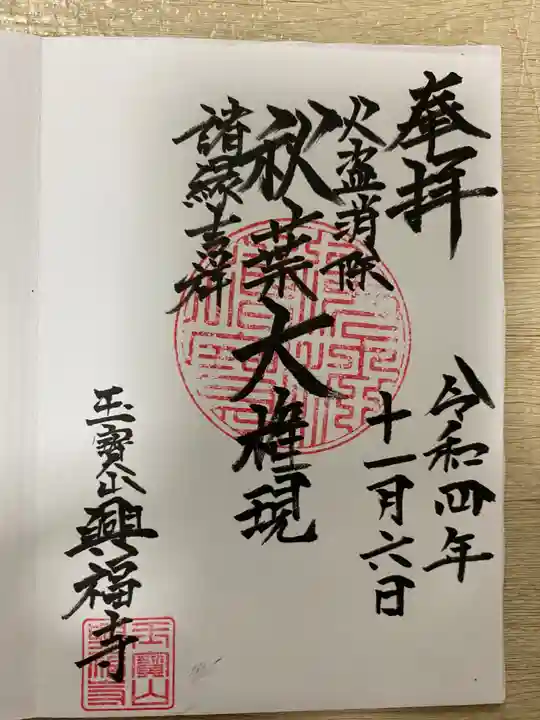 奉拝
令和四年
十一月六日
火盗消除
秋葉大権現
諸縁吉祥
玉寳山
興福寺
玉寳山
興福寺